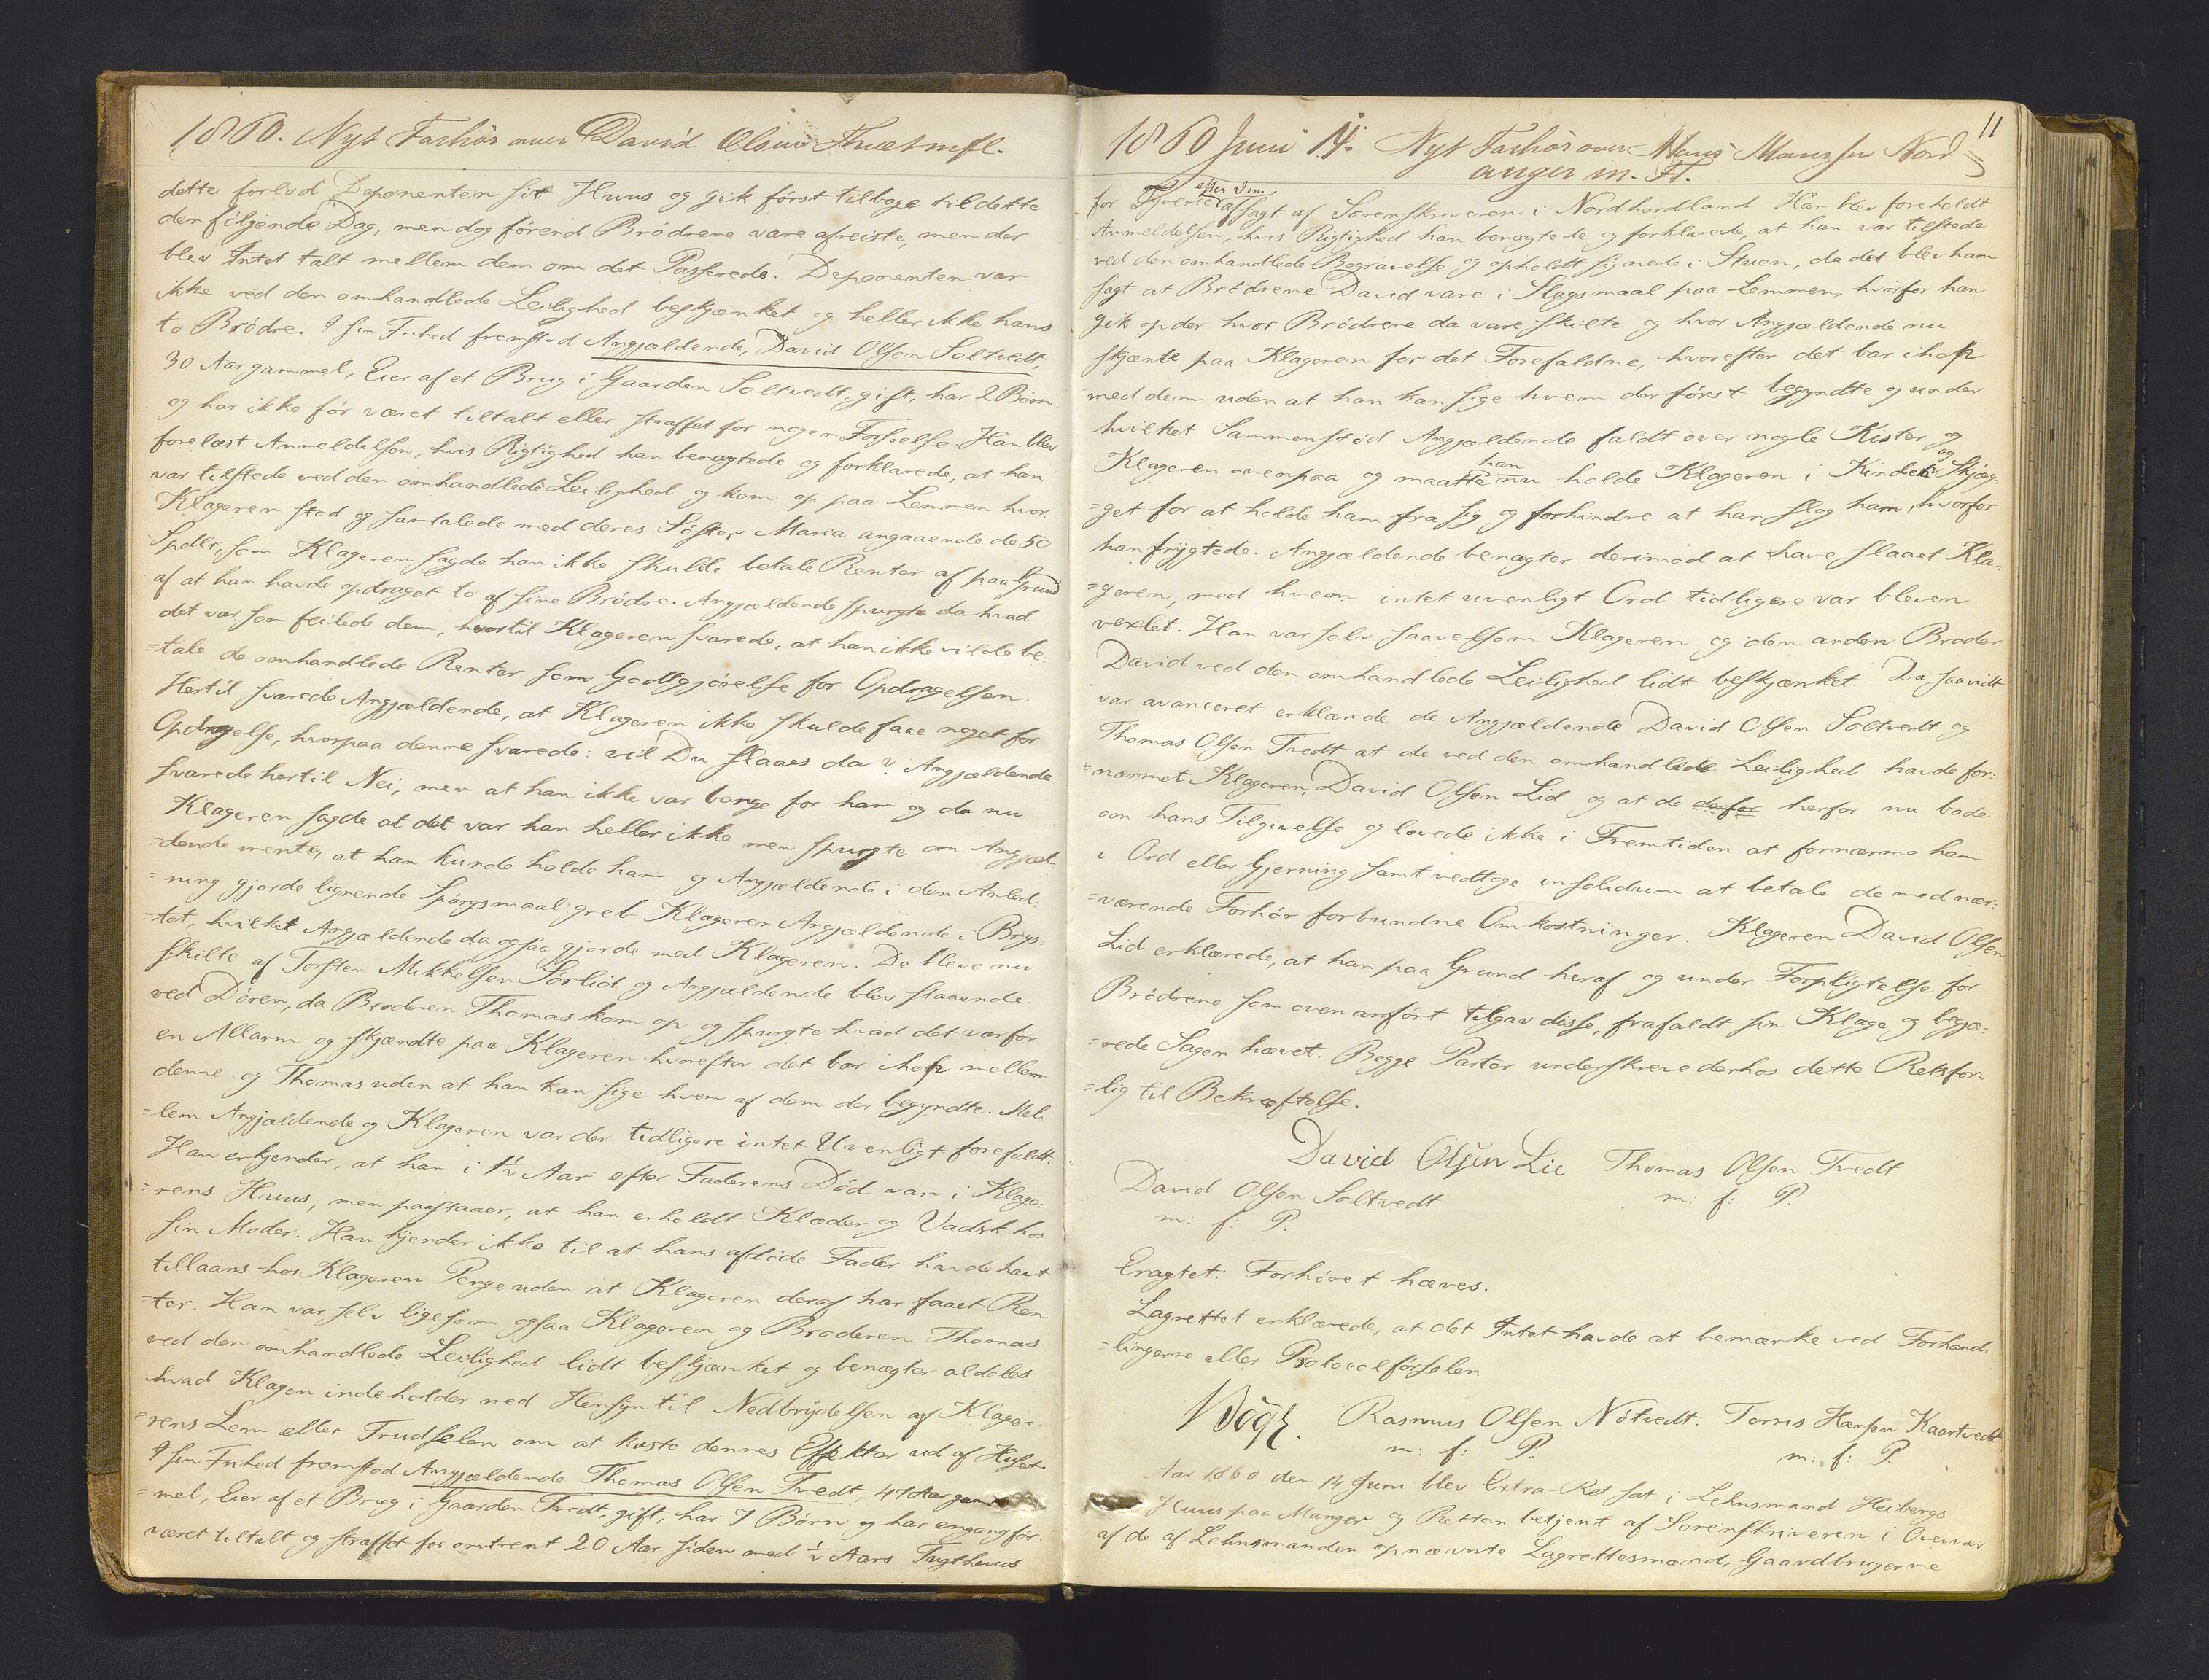 1860. Nyt Forhör over David Olsen Thvet m fl.
dette forlod Deponenten sit Huus og gik först tilbage til dette
den fölgende Dag, men dog förend Brödrene vare afreiste, men der
blev Intet talt mellem dem om det Passerede. Deponenten var
ikke ved den omhandlede Leilighed beskjænket og heller ikke hans
to Brödre. I sin Frihed fremstod Angjældende, David Olsen Soltvedt,
30 Aar gammel, Eier af et Brug i Gaarden Soltvedt, gift, har 2 Börn
og har ikke för været tiltalt eller straffet for nogen Forseelse. Han blev
forelæst Anmeldelsen, hvis Rigtighed han benægtede og forklarede, at han
var tilstede ved den omhandlede Leilighed og kom op paa Lemmen hvor
Klageren stod og samtalede med deres Söster Maria angaaende de 50
Spdlr, som Klageren sagde han ikke skulde betale Renter af paa Grund
af at han havde opdraget to af sine Brödre. Angjældende spurgte da hvad
det var som feilede dem, hvortil Klageren svarede, at han ikke vilde be-
=tale de omhandlede Renter som Godtgjörelse for Opdragelsen.
Hertil svarede Angjældende, at Klageren ikke skulde faae noget for
Opdragelse, hvorpaa denne svarede: vil Du slaaes da? Angjældende
svarede hertil Nei, men at han ikke var bange for ham og da nu
Klageren sagde at det var han heller ikke men spurgte om Angjæl-
=dende mente, at han kunde holde ham og Angjældende i den Anled-
=ning gjorde lignende Spörgsmaal greb Klageren Angjældende i Brys-
=tet, hvilket Angjældende da ogsaa gjorde med Klageren. De bleve nu
skilte af Torsten Mikkelsen Sörlid og Angjældende blev staaende
ved Dören, da Broderen Thomas kom op og spurgte hvad det var for
en Allarm og skjændte paa Klageren hvorefter det bar ihop mellem
denne og Thomas uden at han kan sige hvem af dem der begyndte. Mel-
=lem Angjældende og Klageren var der tidligere intet Uvenligt forefaldt.
Han erkjender, at han i 1½ Aar efter Faderens Död var i Klage-
=rens Huus, men paastaaer, at han erholdt Klæder og Vadsk hos
sin Moder. Han kjender ikke til at hans aflöde Fader havde havt
tillaans hos Klageren Penge uden at Klageren deraf har faaet Ren-
=ter. Han var selv ligesom ogsaa Klageren og Broderen Thomas
ved den omhandlede Leilighed lidt beskjænket og benægter aldeles
hvad Klagen indeholder med Hensyn til Nedbrydelsen af Klage-
=rens Lem eller Trudselen om at kaste dennes Effekter ud af Huset.
I sin Frihed fremstod Angjældende Thomas Olsen Tvedt, 47 Aar gam-
=mel, Eier af et Brug i Gaarden Tvedt, gift, har 7 Börn og har engang för
været tiltalt og straffet for omtrent 20 Aar siden med ½ Aars Tugthuus
11
1860 Juni 14. Nyt Forhör over Mons Monssen Nord=
anger m. Fl.
for Tyverie efter Dom afsagt af Sorenskriveren i Nordhordland Han blev foreholdt
Anmeldelsen, hvis Rigtighed han benægtede og forklarede, at han var tilstede
ved den omhandlede Begravelse og opholdt sig nede i Stuen, da det blev ham
sagt at Brödrene David vare i Slagsmaal paa Lemmen, hvorfor han
gik op der hvor Brödrene da vare skilte og hvor Angjældende nu
skjænte paa Klageren for det Forefaldne, hvorefter det bar ihop
med dem uden at han kan sige hvem der först begyndte og under
hvilket Sammenstöd Angjældende faldt over nogle Kister og
Klageren ovenpaa og maatte han nu holde Klageren i Kinden og Skjæg-
=get for at holde ham fra sig og forhindre at han slog ham, hvorfor
han frygtede. Angjældende benægter derimod at have slaaet Kla-
=geren, med hvem intet uvenligt Ord tidligere var bleven
vexlet. Han var selv saavelsom Klageren og den anden Broder
David ved den omhandlede Leilighed lidt beskjænket. Da saavidt
var avanceret erklærede de Angjældende David Olsen Soltvedt og
Thomas Olsen Tvedt at de ved den omhandlede Leilighed havde for-
=nærmet Klageren, David Olsen Lid og at de derfor herfor nu bade
om hans Tilgivelse og lovede ikke i Fremtiden at fornærme ham
i Ord eller Gjerning samt vedtoge in solidum at betale de med nær-
=værende Forhör forbundne Omkostninger. Klageren David Olsen
Lid erklærede, at han paa Grund heraf og under Forpligtelse for
Brödrene som ovenanfört tilgav disse, frafaldt sin Klage og begjæ-
=rede Sagen hævet. Begge Parter underskreve derhos dette Retsfor-
=lig til Bekræftelse.
David Olsen Lie Thomas Olsen Tvedt
David Olsen Soltvedt m: f: P:
m: f: P:
Eragtet: Forhöret hæves.
Lagrettet erklærede, at det Intet havde at bemærke ved Forhand-
=lingerne eller Protocolförselen
Bögh. Rasmus Olsen Nötvedt. Torris Hansen Kaartvedt
m: f: P. m: f: P.
Aar 1860 den 14 Juni blev Extra-Ret sat i Lehnsmand Heibergs
Huus paa Manger og Retten betjent af Sorenskriveren i Overvær
af de af Lehnsmanden opnævnte Lagrettesmænd, Gaardbrugerne